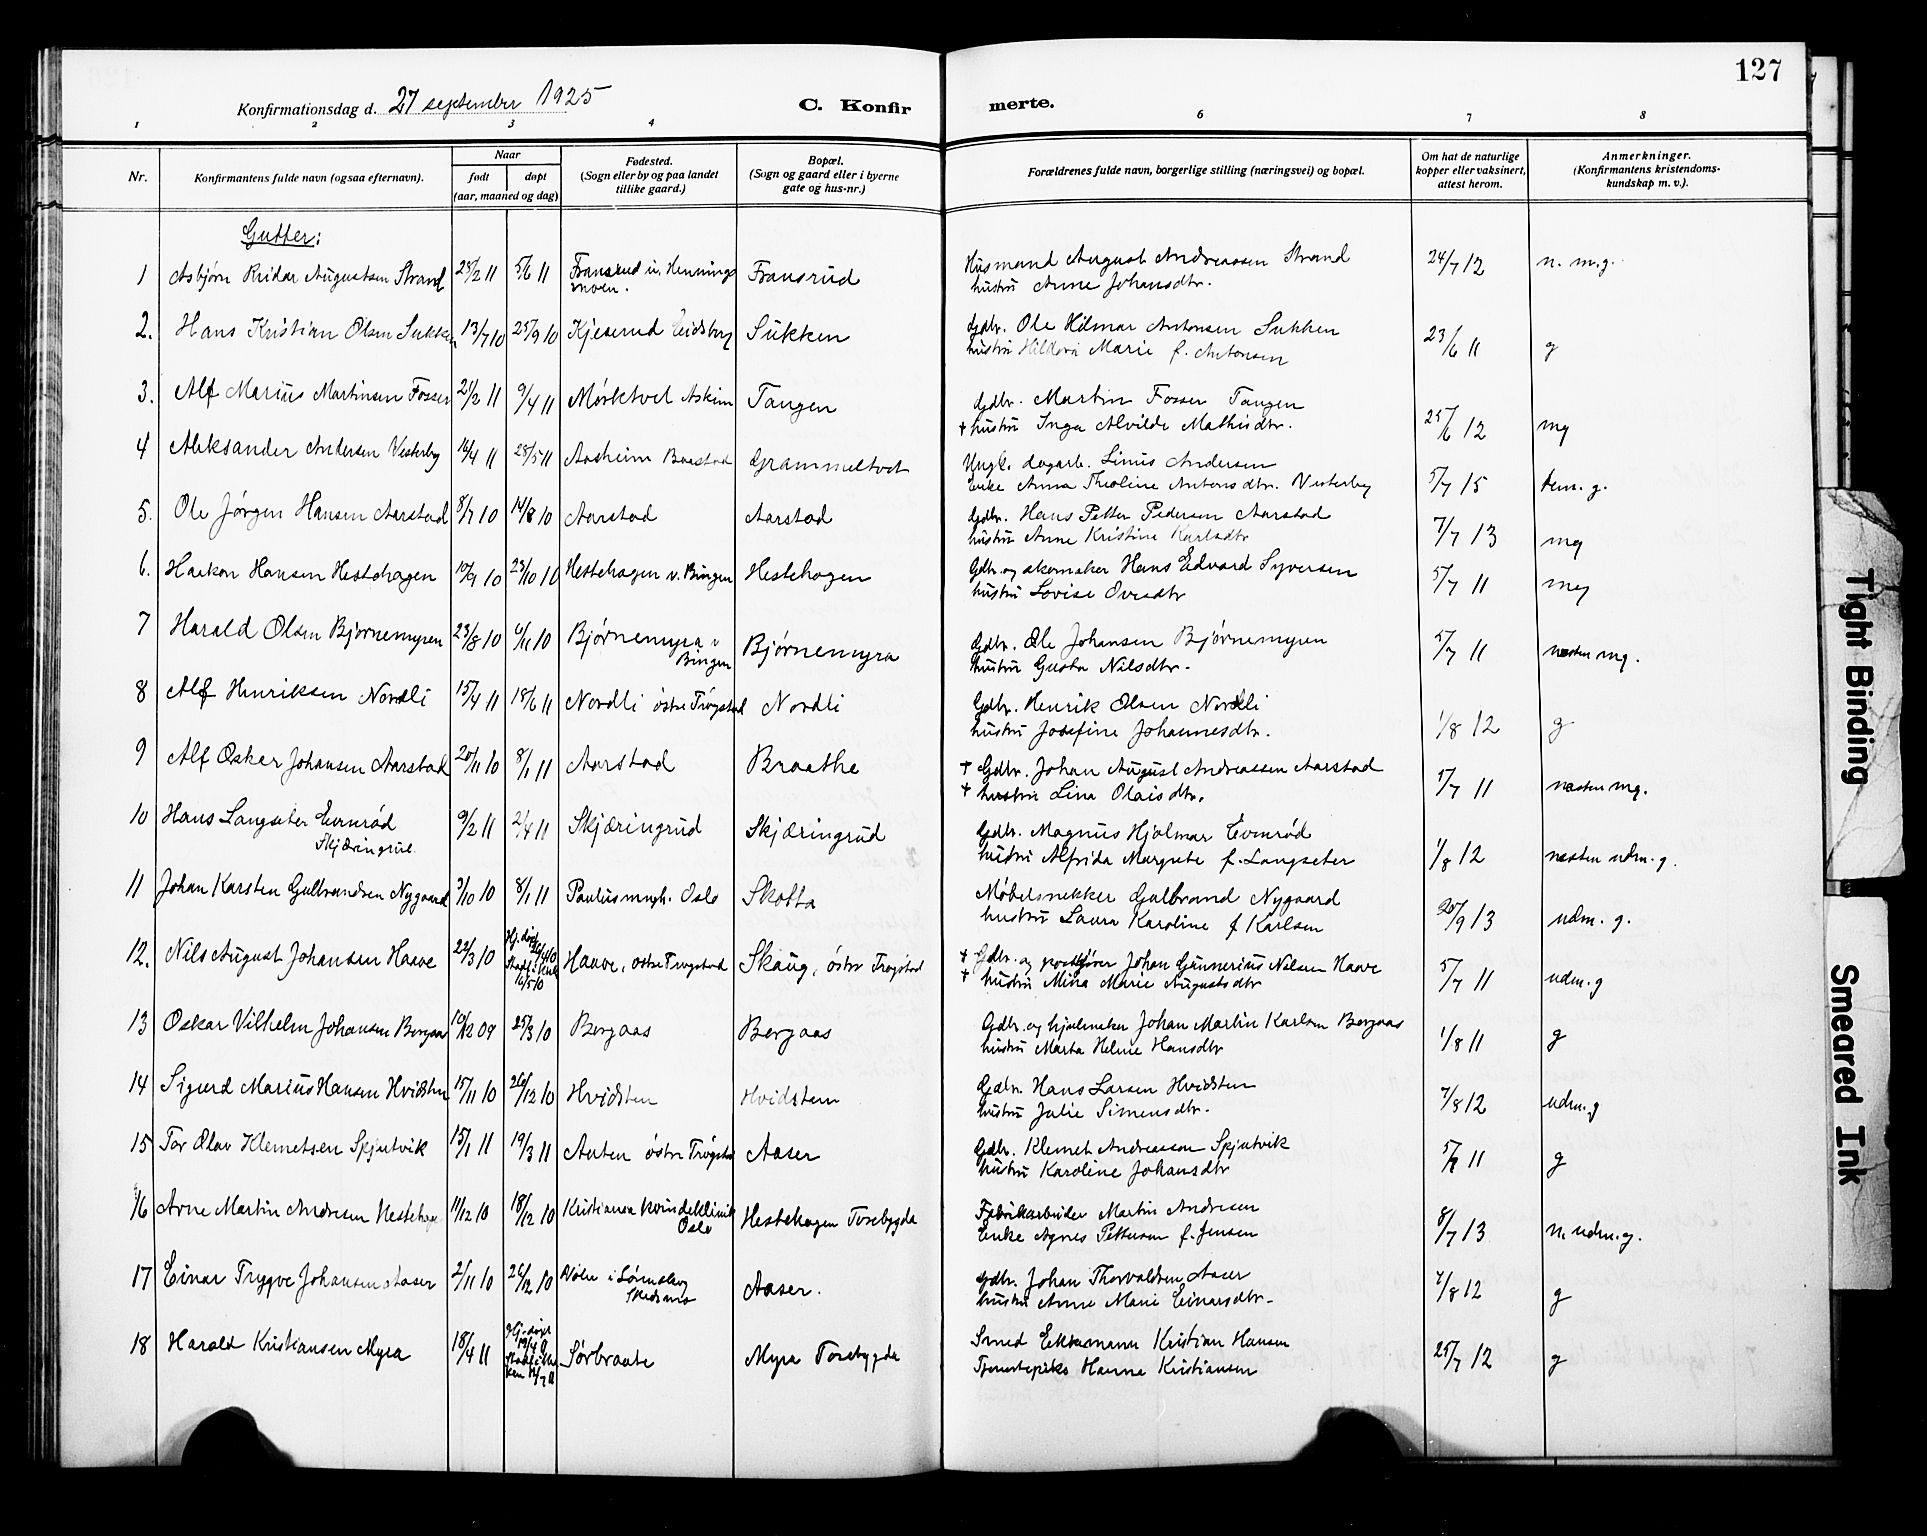 127
Konfirmationsdag d. 27 september 1925
C. Konfirmerte.
1 2 3 4 6 7 8
Nr.
Konfirmantens fulde navn (ogsaa efternavn).
Naar
født døpt
(aar, maaned og dag)
Fødested.
(Sogn eller by og paa landet
tillike gaard.)
Bopæl.
(Sogn og gaard eller i byerne
gate og hus-nr.)
Forældrenes fulde navn, borgerlige stilling (næringsvei) og bopæl.
Om hat de naturlige
kopper eller vaksinert,
attest herom.
Anmerkninger.
(Konfirmantens kristendoms-
kundskap m. v.).
Gutter:
1 Asbjørn Reidar Augustsen Strand 25/2 11 5/6 11 Fransrud u. Hennings moen. Fransrud Husmand August Andreassen Strand 24/7 12 n. m.g.
hustru Anne Johansdtr.
2. Hans Kristian Olsen Sukken 13/7 10 25/9 10 Kjeserud Eidsberg Sukken Gdbr. Ole Hilmar Antonsen Sukken 23/6 11 g
hustru Hildora Marie f. Antonsen
3. Alf Marius Martinsen Fosser 21/2 11 9/4 11 Mørktvet Askim Tangen Gdbr. Martin Fosser Tangen 25/6 12 mg
+ hustru Inga Alvilde Mathisdtr.
4 Aleksander Andersen Vesterby 16/4 11 28/5 11 Aasheim Baastad Grammeltvet Ungk. dagarb. Linus Andersen 5/7 15 tem. g.
Enke Anna Theoline Antonsdtr. Vesterby
5. Ole Jørgen Hansen Aarstad 8/7 10 14/8 10 Aarstad Aarstad Gdbr. Hans Petter Pedersen Aarstad 7/7 13 mg
hustru Anne Kristine Karlsdtr
6. Haakon Hansen Hestehagen 10/9 10 23/10 10 Hestehagen v. Bingen Hestehagen Gdbr. og skomaker Hans Edvard Syversen 5/7 11 mg
hustru Lovise Ovesdtr
7 Harald Olsen Bjørnemyren 23/8 10 6/11 10 Bjørnemyra v Bingen Bjørnemyra Gdbr. Ole Johansen Bjørnemyren 5/7 11 næsten mg.
hustru Gusta Nilsdtr.
8 Alf Henriksen Nordli 15/4 11 18/6 11 Nordli østre Trøgstad Nordli Gdbr. Henrik Olsen Nordli 1/8 12 g
hustru Josefine Johannesdtr.
9 Alf Oskar Johansen Aarstad 20/11 10 8/1 11 Aarstad Braathe + Gdbr. Johan August Andreassen Aarstad 5/7 11 næsten mg.
+ hustru Lina Olaisdtr.
10 Hans Langseter Evenrød 9/2 11 2/4 11 Skjæringrud Skjæringrud Gdbr. Magnus Hjalmar Evenrød 1/8 12 næsten udm. g.
Skjæringrud hustru Alfrida Margrete f. Langseter
11 Johan Karsten Gulbrandsen Nygaard 3/10 10 8/1 11 Paulus mngh. Oslo Skotta Møbelsnekker Gulbrand Nygaard 20/9 13 udm. g.
hustru Laura Karoline f Karlsen
12. Nils August Johansen Haave 22/3 10 Hj. døpt Haave, østre Trøgstad Skaug, østre Trøgstad + Gdbr. og postfører Johan Gunnerius Nilsen Haave 5/7 11 udm. g
+ hustru Mina Marie Augustsdtr
13 Oskar Vilhelm Johansen Bergaas 10/12 09 25/3 10 Bergaas Bergaas Gdbr. og hjulmaker Johan Martin Karlsen Bergaas 1/8 11 g
hustru Marta Helene Hansdtr
14 Sigurd Marius Hansen Hvidsten 15/11 10 26/12 10 Hvidsten Hvidsten Gdbr. Hans Larsen Hvidsten 7/8 12 udm. g
hustru Julie Simensdtr.
15 Tor Olav Klemetsen Spjutvik 15/1 11 19/3 11 Auten østre Trøgstad Aaser Gdbr. Klemet Andreassen Spjutvik 5/7 11 g
hustru Karoline Johansdtr
16 Arne Martin Andresen Hestehage 11/12 10 18/12 10 Kristiania kvindeklinik Oslo Hestehagen Torebygda Fabrikarbeider Martin Andresen 8/7 13 n. udm. g.
Enke Agnes Pettersen f. Jensen
17 Einar Trygve Johansen Aaser 2/11 10 26/12 10 i Skedsmo Aaser. Gdbr. Johan Thorvaldsen Aaser 7/8 12 g
hustru Anne Marie Einarsdtr.
18 Harald Kristiansen Myra 18/4 11 Hj. døpt Sørbraate Myra Torebygda Smed Enkemann Kristian Hansen 25/7 12 g
Tjenestepike Hanna Kristiansen
Tight Binding
Smeared Ink